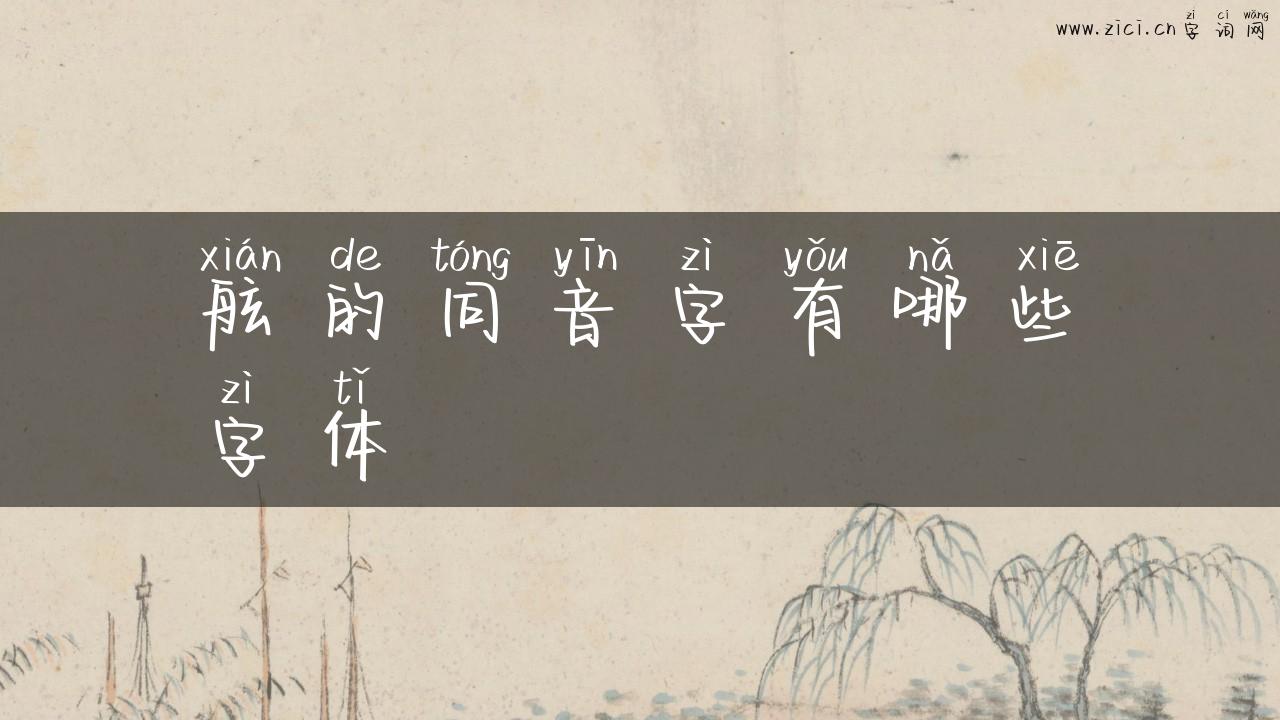 zì cí wǎng
www.zici.cn字词网
xián de tóng yīn zì yǒu nǎ xiē
舷的同音字有哪些
zì tǐ
字体